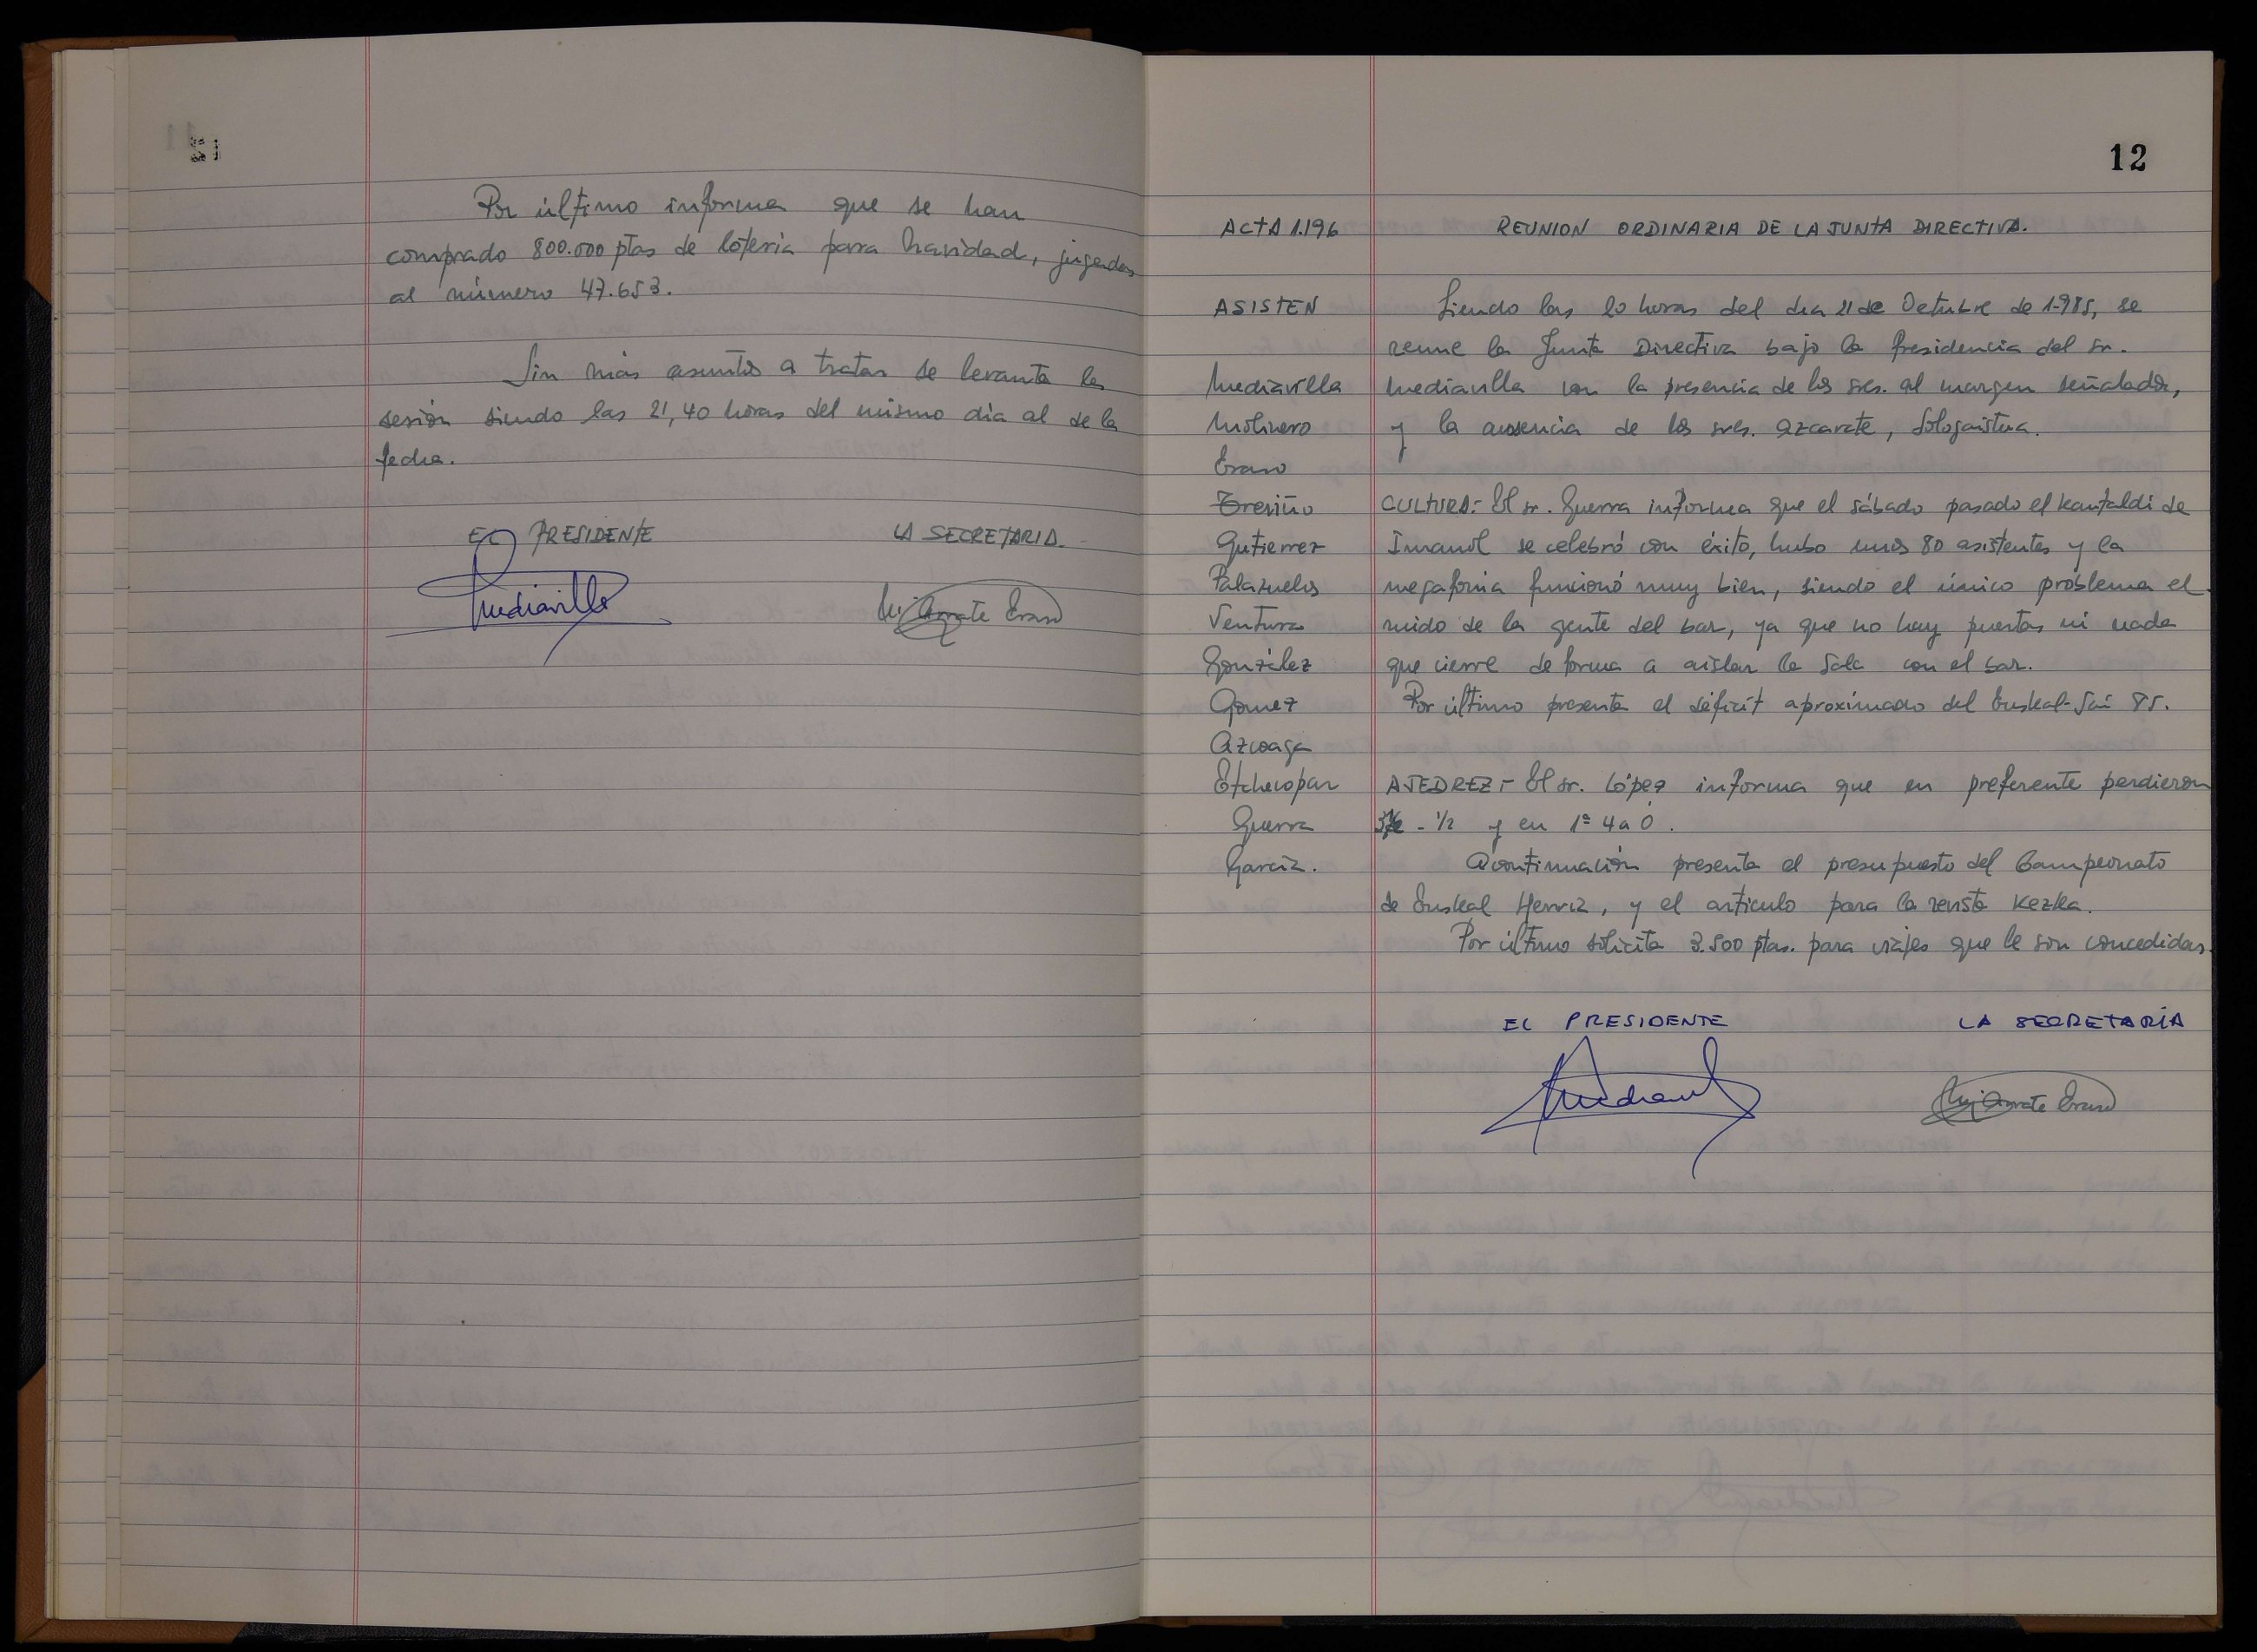 Por último informa que se han
comprado 800.000 ptas de lotería para Navidad, jugados
al número 47.653.
Sin más asuntos a tratar se levanta la
sesión siendo las 21,40 horas del mismo día al de la
fecha.
EL PRESIDENTE LA SECRETARIA
Mediavilla Mª Arrate Eraso
12
ACTA 1.196 REUNION ORDINARIA DE LA JUNTA DIRECTIVA.
ASISTEN Siendo las 20 horas del dia 21 de Octubre de 1.985, se
reune la Junta Directiva bajo la Presidencia del sr.
Mediavilla Mediavilla con la presencia de los sres. al margen señalados,
Molinero y la ausencia de los sres. Azcarate, Sologaistua.
Eraso
Treviño CULTURA:- El sr. Guerra informa que el sábado pasado el kantaldi de
Gutierrez Imanol se celebró con éxito, hubo unos 80 asistentes y la
Palazuelos megafonía funcionó muy bien, siendo el único problema el
Ventura ruido de la gente del bar, ya que no hay puertas ni nada
González que cierre de forma a aislar la sala con el bar.
Gomez Por último presenta el déficit aproximado del Euskal-Jai 85.
Azcoaga
Etchecopar AJEDREZ:- El sr. López informa que en preferente perdieron
Guerra - 1/2 y en 1ª 4 a 0.
García. A continuación presenta el presupuesto del Campeonato
de Euskal Herria, y el articulo para la revista Kezka.
Por último solicita 3.500 ptas. para viajes que le son concedidas.
EL PRESIDENTE LA SECRETARIA
Mediavilla Mª Arrate Eraso